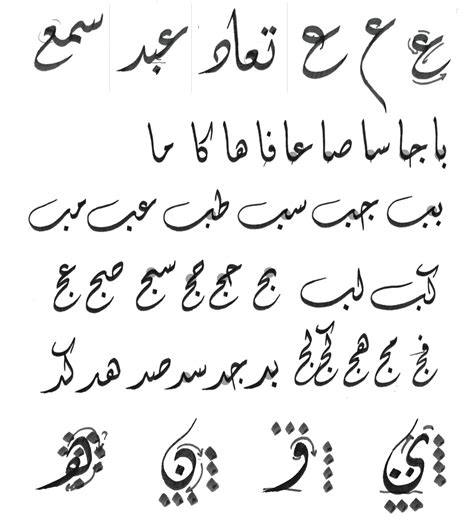 ع ع ع تعاد عبد سمع
با جا سا صا عا فا ها كا ما
بب جب سب طب عب مب
كب لب بج حج حج سج صج عج
فج مج هج كج لج بد جد سد صد هد كد
و ن